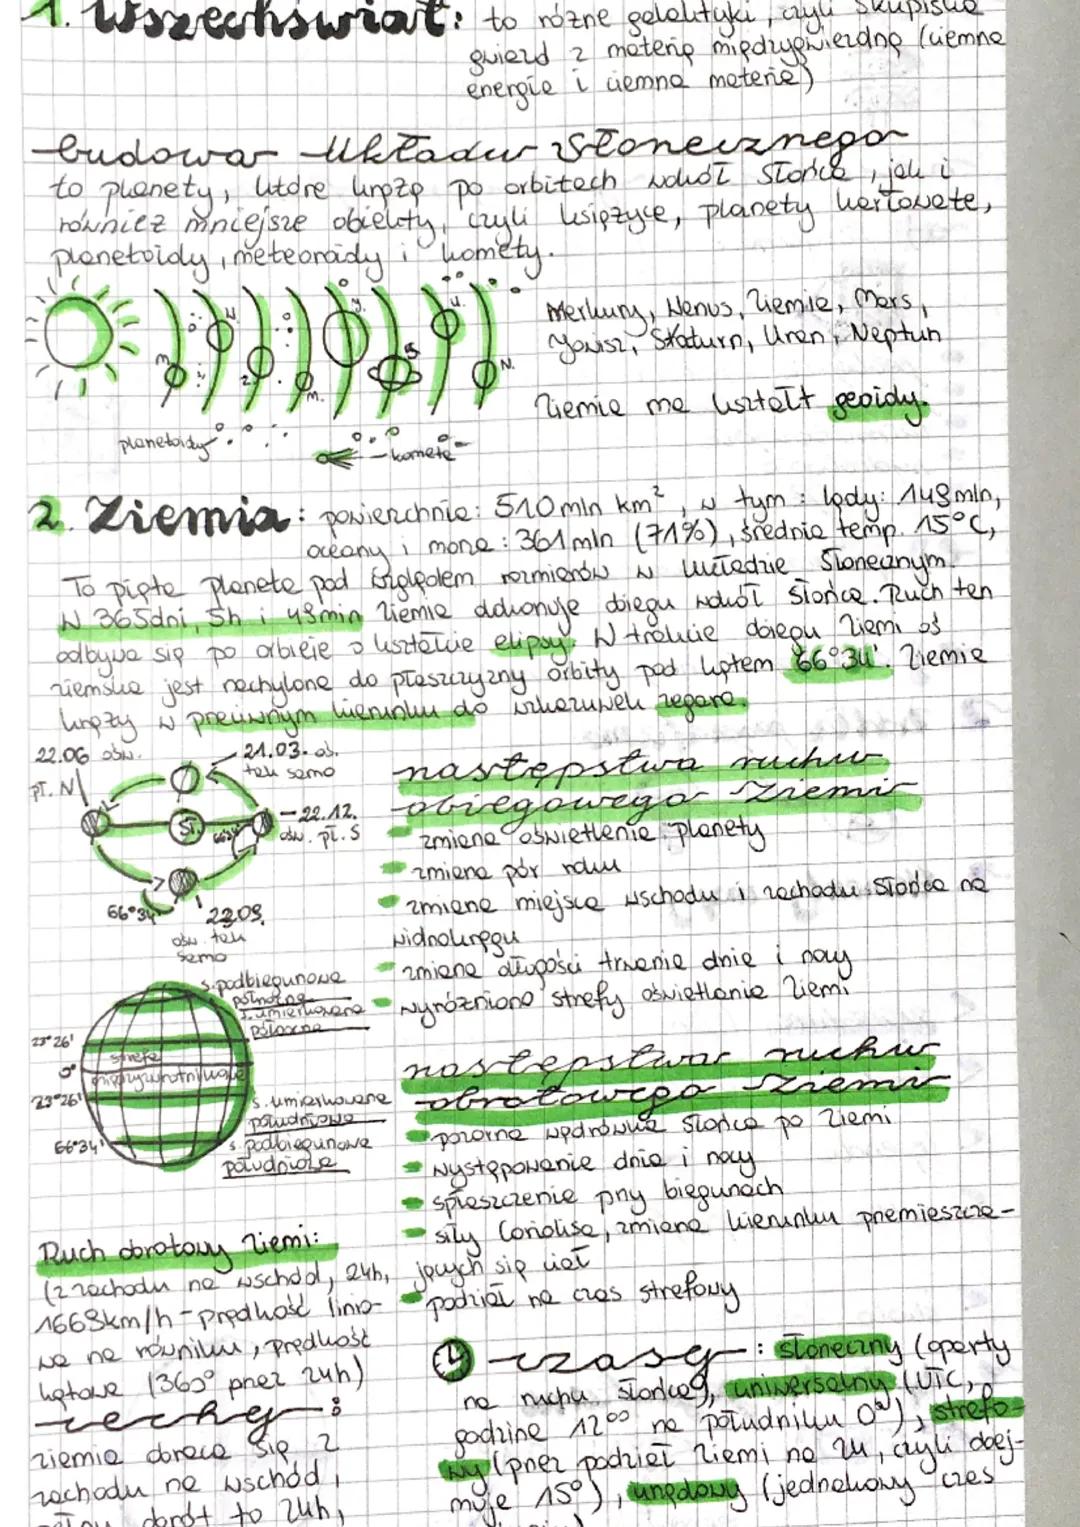 1. Wszechświat: to różne galaktyki, czyli skupiska
gwiazd z materią międzygwiezdną (ciemna
energia i ciemna materia)
budowa Układu Słonecznego
to planety, które krążą po orbitach wokół Słońca, jak i
również mniejsze obiekty, czyli księżyce, planety karłowate,
planetoidy, meteoroidy i komety.
Merkury, Wenus, Ziemia, Mars,
Jowisz, Saturn, Uran i Neptun
m. W z. m. J. S. u. N.
Ziemia ma kształt geoidy.
planetoidy
- kometa
2. Ziemia: powierzchnia: 510 mln km², w tym: lądy: 149 mln,
oceany i morza: 361 mln (71%), średnia temp. 15°C,
To piąta planeta pod względem rozmiarów w Układzie Słonecznym.
W 365dni, 5h i 48min Ziemia dokonuje obiegu wokół Słońca. Ruch ten
odbywa się po orbicie o kształcie elipsy. W trakcie obiegu Ziemi oś
ziemska jest nachylona do płaszczyzny orbity pod kątem 66°34'. Ziemia
krąży w przeciwnym kierunku do wskazówek zegara.
22.06 ośw.
pł. N
21.03. oś.
tak samo
- 22.12.
ośw. pł. S
Sł.
66°34'
66°34'
22.09.
ośw. tak
samo
następstwa ruchu
obiegowego Ziemi
zmiana oświetlenia planety
zmiana pór roku
zmiana miejsca wschodu i zachodu Słońca na
widnokręgu
zmiana długości trwania dnia i nocy
wyróżniono strefy oświetlenia Ziemi
s. podbiegunowa
północna
s. umiarkowana
północna
23°26'
0°
23°26'
66°34'
strefa
międzyzwrotnikowa
s. umiarkowana
południowa
s. podbiegunowa
południowa
następstwa ruchu
obrotowego Ziemi
pozorna wędrówka Słońca po Ziemi
występowanie dnia i nocy
spłaszczenie przy biegunach
siły Coriolisa, zmiana kierunku przemieszcza-
jących się ciał
podział na czas strefowy
Ruch obrotowy Ziemi:
(z zachodu na wschód, 24h,
1668km/h - prędkość linio-
wa na równiku, prędkość
kątowa (360° przez 24h)
cechy:
ziemia obraca się z
zachodu na wschód,
obrót to 24h,
czasy: słoneczny (oparty
na ruchu Słońca), uniwersalny (UTC,
godzina 12⁰⁰ na południku 0°), strefo-
wy (przez podział Ziemi na 24, czyli obej-
muje 15°), urzędowy (jednakowy czas